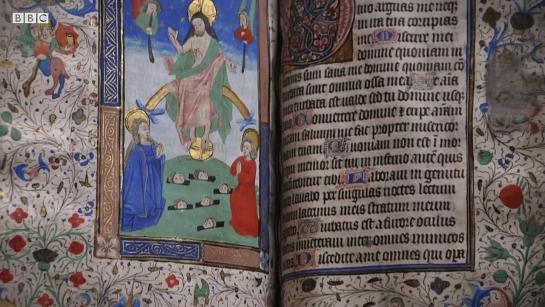 BBC
arguas me neq
in ira tua corripias
Miserere mei
domine quoniam in
sum sana me domine quoniam con
sunt omnia ossa mea Et aia
turbata est valde sed tu domine usq
domine et eripe aiam
saluum me fac propter misericor
tuam Quoniam non est i mor
memor sit tui in inferno aute quis
confitebitur tibi Laboraui in gemitu
lauabo per singulas noctes lectum
lacrimis meis stratum meum
Turbatus est a furore oculus
inueteraui inter omnes inimicos
Discedite a me omnes qui opa